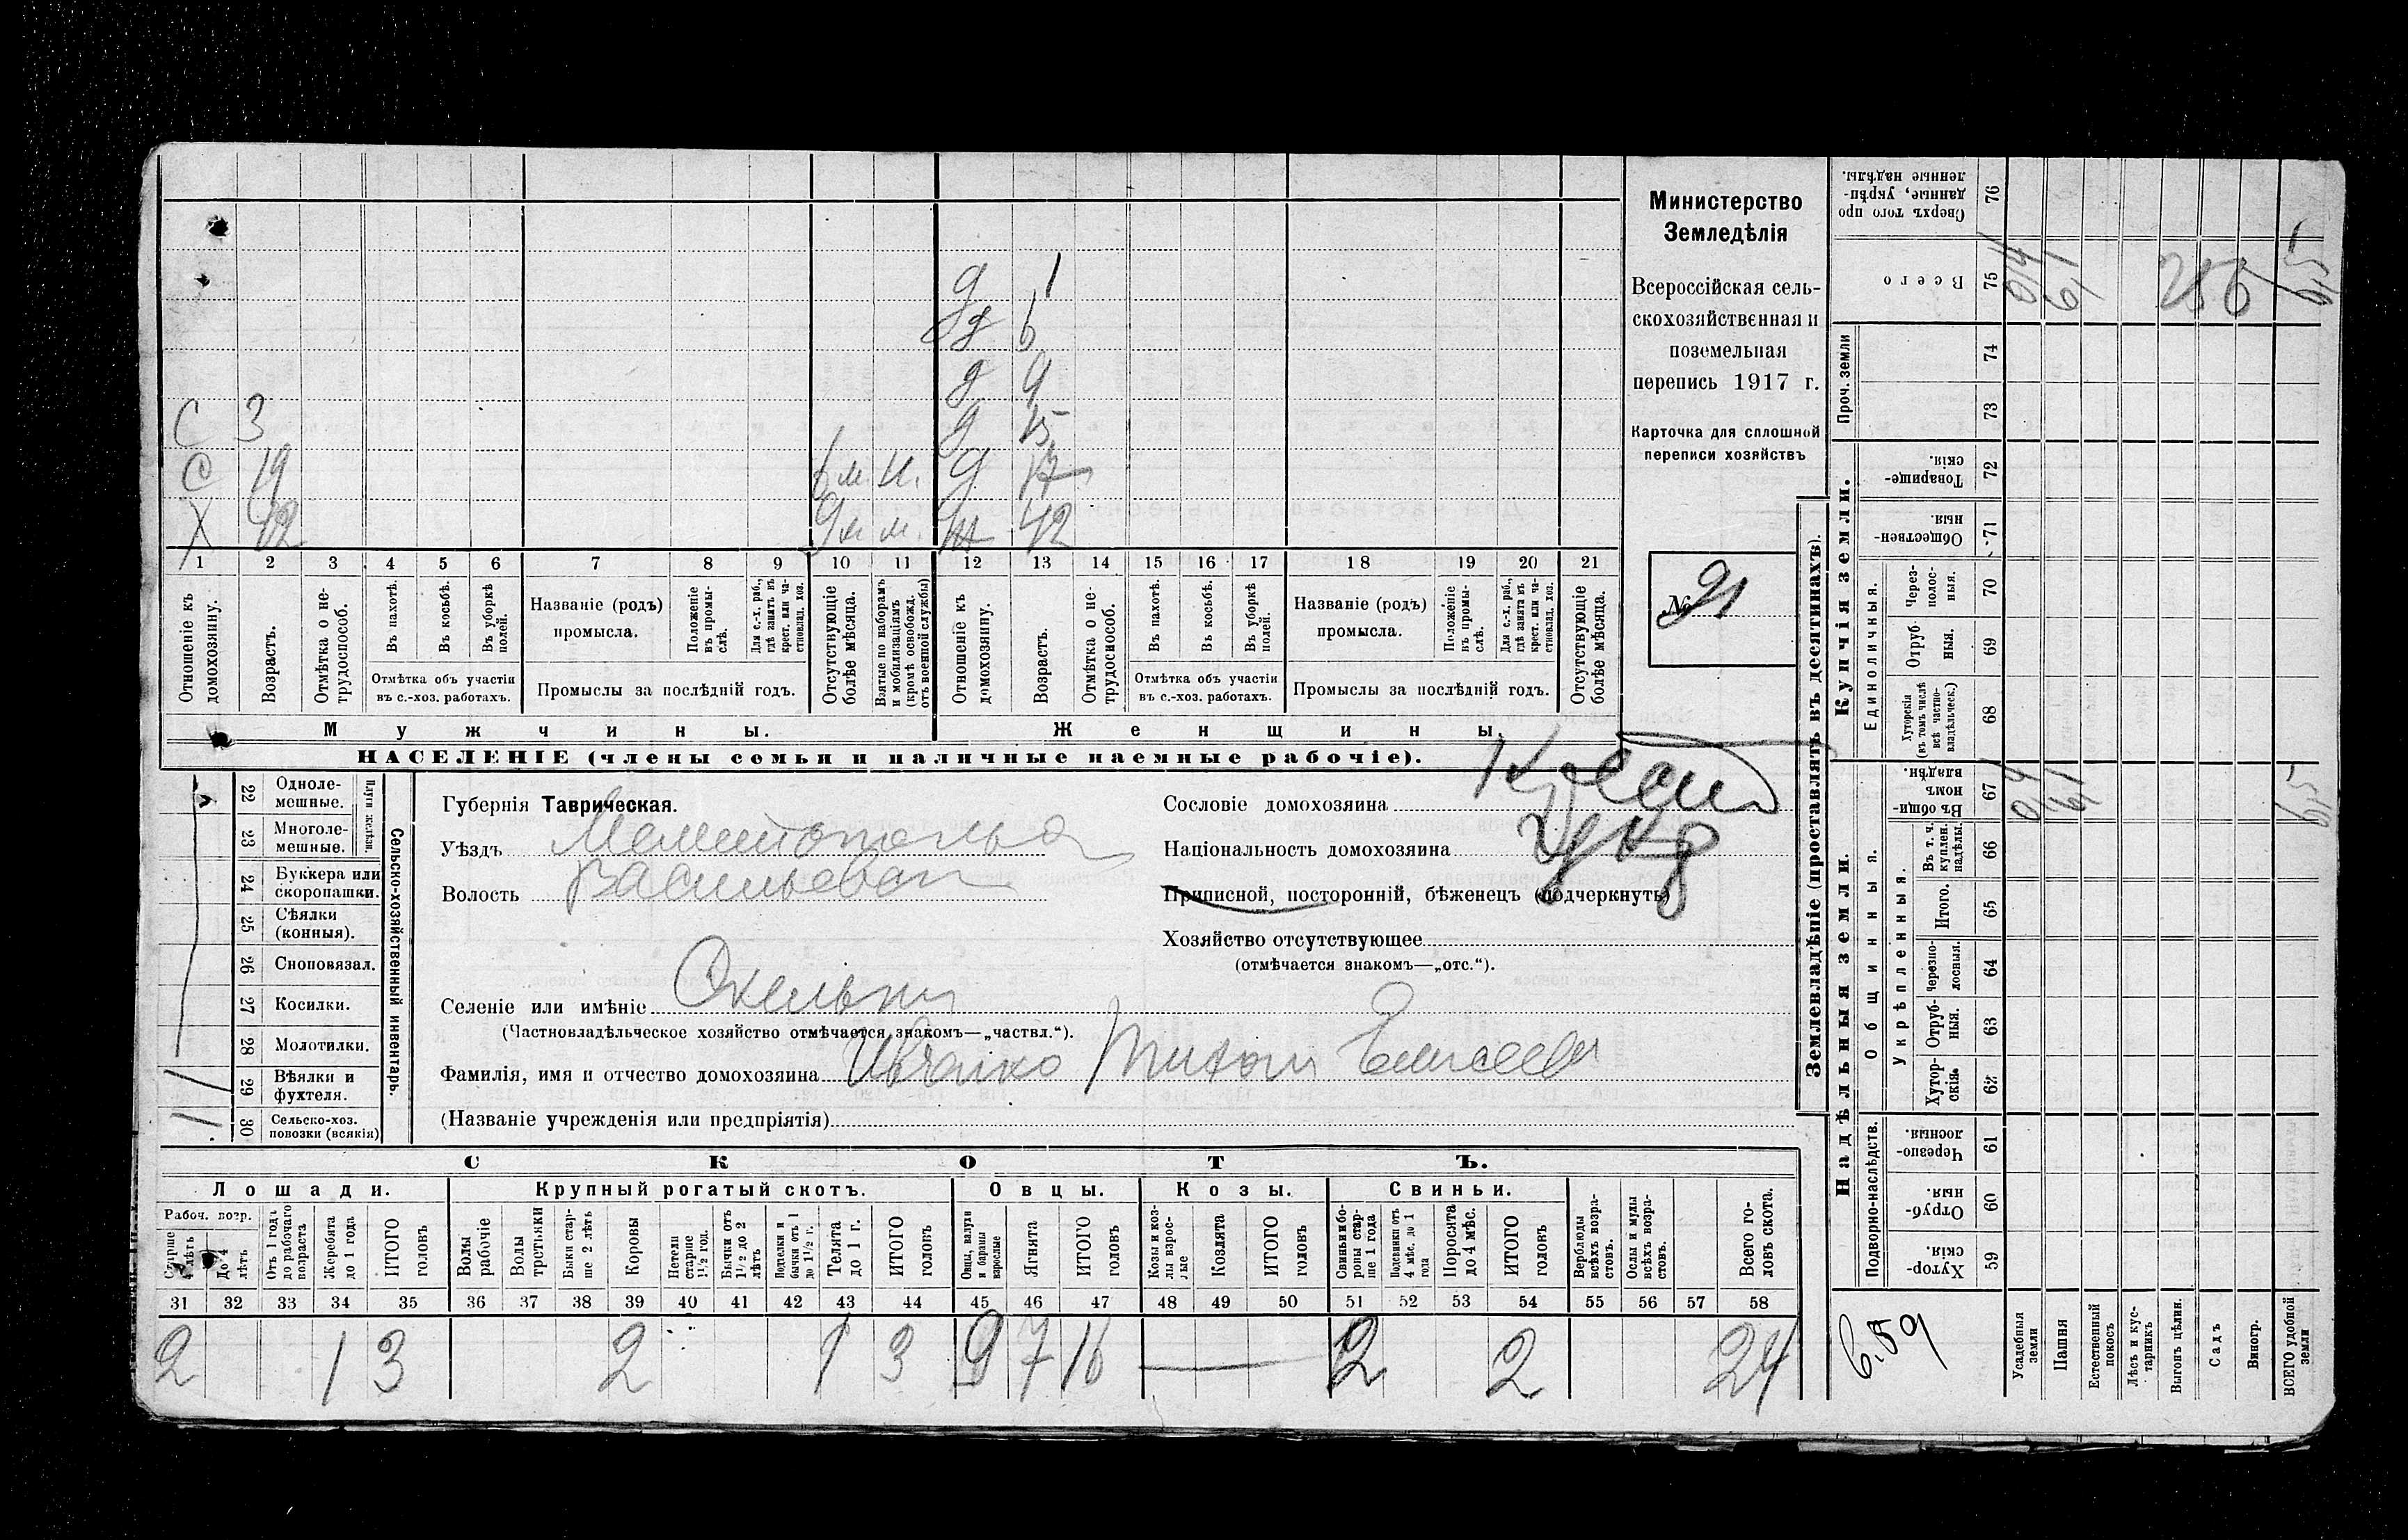 д 1
дд 6
д 9
С 3 д 15
С 19 м. д 17
Х 42 м. ж 42
1 2 3 4 5 6 7 8 9 10 11 12 13 14 15 16 17 18 19 20 21
Отношеніе къ домохозяину.
Возрастъ.
Отмѣтка о нетрудоспособ.
Въ пахотѣ.
Въ косьбѣ.
Въ уборкѣ полей.
Отмѣтка объ участіи въ с.-хоз. работахъ.
Названіе (родъ) промысла.
Положеніе въ промыслѣ.
Для с.-х. раб., гдѣ занятъ въ крест. или частновлад. хоз.
Промыслы за послѣдній годъ.
Отсутствующіе болѣе мѣсяца.
Взятые по наборамъ и мобилизаціямъ (кромѣ освобожд. отъ военной службы)
Отношеніе къ домохозяину.
Возрастъ.
Отмѣтка о нетрудоспособ.
Въ пахотѣ.
Въ косьбѣ.
Въ уборкѣ полей.
Отмѣтка объ участіи въ с.-хоз. работахъ.
Названіе (родъ) промысла.
Положеніе въ промыслѣ.
Для с.-х. раб., гдѣ занята въ крест. или частновлад. хоз.
Промыслы за послѣдній годъ.
Отсутствующіе болѣе мѣсяца.
Мужчины.
Женщины.
НАСЕЛЕНІЕ (члены семьи и наличные наемные рабочіе).
Министерство
Земледѣлія
Всероссійская сель-
скохозяйственная и
поземельная
перепись 1917 г.
Карточка для сплошной
переписи хозяйствъ
№ 91
Сельско-хозяйственный инвентарь.
Плуги желѣзн.
22 Одноле-мешные.
23 Многоле-мешные.
24 Буккера или скоропашки.
25 Сѣялки (конныя).
26 Сноповязал.
27 Косилки.
28 Молотилки.
1 29 Вѣялки и фухтеля.
1 30 Сельско-хоз. повозки (всякія)
Губернія Таврическая.
Уѣздъ Мелитополь
Волость Васильевск
Селеніе или имѣніе
(Частновладѣльческое хозяйство отмѣчается знакомъ—„частвл.“).
Фамилія, имя и отчество домохозяина Ивченко Тихон Елисеев
(Названіе учрежденія или предпріятія)
Сословіе домохозяина Крест
Національность домохозяина Укр
Приписной, посторонній, бѣженецъ (подчеркнуть)
Хозяйство отсутствующее
(отмѣчается знакомъ—„отс.“).
СКОТЪ.
Лошади.
Крупный рогатый скотъ.
Овцы.
Козы.
Свиньи.
Рабоч. возр.
Старше 4 лѣтъ
До 4 лѣтъ
Отъ 1 года до рабочаго возраста
Жеребята до 1 года
ИТОГО головъ
Волы рабочіе
Волы третьяки
Быки старше 2 лѣтъ
Коровы
Нетели старше 1½ год.
Бычки отъ 1½ до 2 лѣтъ
Подтелки и бычки отъ 1 до 1½ г.
Телята до 1 г.
ИТОГО головъ
Овцы, валухи и бараны взрослые
Ягнята
ИТОГО головъ
Козы и козлы взрослые
Козлята
ИТОГО головъ
Свиньи и боровы старше 1 года
Подсвинки отъ 4 мѣс. до 1 года
Поросята до 4 мѣс.
ИТОГО головъ
Верблюды всѣхъ возрастовъ.
Ослы и мулы всѣхъ возрастовъ.
Всего головъ скота.
31 32 33 34 35 36 37 38 39 40 41 42 43 44 45 46 47 48 49 50 51 52 53 54 55 56 57 58
2 1 3 2 1 3 9 7 16 — 2 2 24
Землевладѣніе (проставлять въ десятинахъ).
Сверхъ того проданные, укрѣпленные надѣлы. 76
Всего 75
Проч. земли
74
73
Купчія земли.
Товарищескія. 72
Общественныя. 71
Единоличныя.
Черезполосныя. 70
Отрубныя. 69
Хуторскія (въ томъ числѣ всѣ частновладѣльческ.) 68
Надѣльныя земли.
Общинныя.
Въ общинномъ владѣн. 67
Укрѣпленныя.
Въ т. ч. куплен. надѣлы. 66
Итого. 65
Черезполосныя. 64
Отрубныя. 63
Хуторскія 62
Подворно-наслѣдств.
Черезполосныя. 61
Отрубныя. 60
Хуторскія. 59
6.59
Усадебныя земли
Пашня
Естественный покосъ
Лѣсъ и кустарникъ
Выгонъ цѣлин.
Садъ
Виногр.
ВСЕГО удобной земли